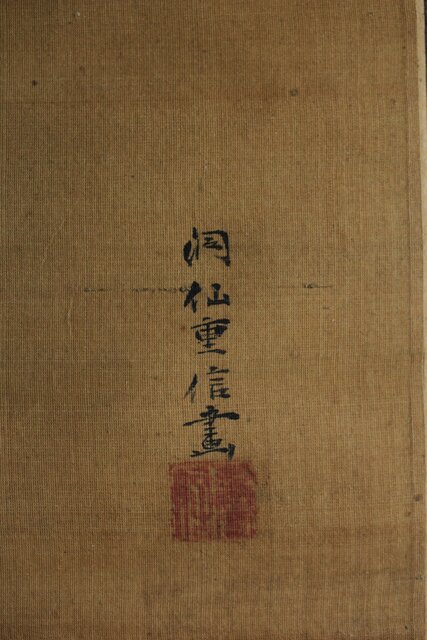 洞仙重信畫